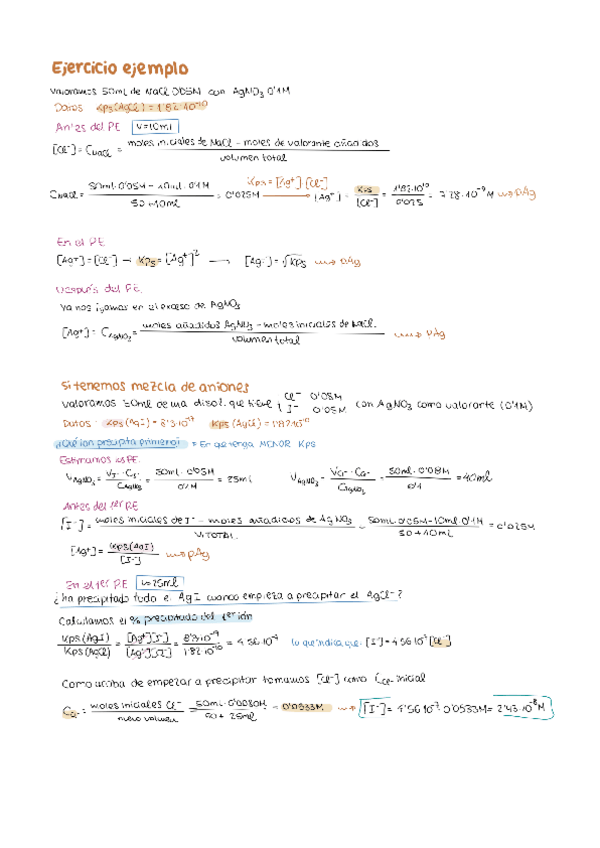 Ejercicio ejemplo
Valoramos 50ml de NaCl 0'05M con AgNO3 0'1M
Datos: Kps(AgCl) = 1'82·10^-10
Antes del PE V=10ml
[Cl-] = C NaCl = moles iniciales de NaCl - moles de valorante añadidos / volumen total
C NaCl = 50ml·0'05M - 10ml·0'1M / 50+10ml = 0'025M → Kps=[Ag+]·[Cl-] [Ag+] = Kps / [Cl-] = 1'82·10^-10 / 0'025 = 7'28·10^-9 M → pAg
En el PE
[Ag+]=[Cl-] → Kps=[Ag+]^2 → [Ag+]=√Kps → pAg
Después del PE
Ya nos fijamos en el exceso de AgNO3
[Ag+] = C AgNO3 = moles añadidos AgNO3 - moles iniciales de NaCl / volumen total → pAg
Si tenemos mezcla de aniones
Valoramos 50ml de una disol. que tiene Cl- 0'08M I- 0'05M con AgNO3 como valorante (0'1M)
Datos: Kps(AgI) = 8'3·10^-17 Kps(AgCl) = 1'82·10^-10
¿Qué ion precipita primero? = El que tenga MENOR Kps
Estimamos los PE:
V AgNO3 = V I-·C I- / C AgNO3 = 50ml·0'05M / 0'1M = 25ml V AgNO3 = V Cl-·C Cl- / C AgNO3 = 50ml·0'08M / 0'1 = 40ml
Antes del 1er PE
[I-] = moles iniciales de I- - moles añadidos de AgNO3 / V TOTAL = 50ml·0'05M-10ml·0'1M / 50+10ml = 0'025M
[Ag+] = Kps(AgI) / [I-] → pAg
En el 1er PE V=25ml
¿ha precipitado todo el AgI cuando empieza a precipitar el AgCl-?
Calculamos el % precipitado del 1er ión
Kps(AgI) / Kps(AgCl) = [Ag+][I-] / [Ag+][Cl-] = 8'3·10^-17 / 1'82·10^-10 = 4'56·10^-7 lo que indica que: [I-] = 4'56·10^-7 [Cl-]
Como acaba de empezar a precipitar tomamos [Cl-] como C Cl- inicial
C Cl- = moles iniciales Cl- / nuevo volumen = 50ml·0'080M / 50+25ml = 0'0533M → [I-] = 4'56·10^-7·0'0533M = 2'43·10^-8 M